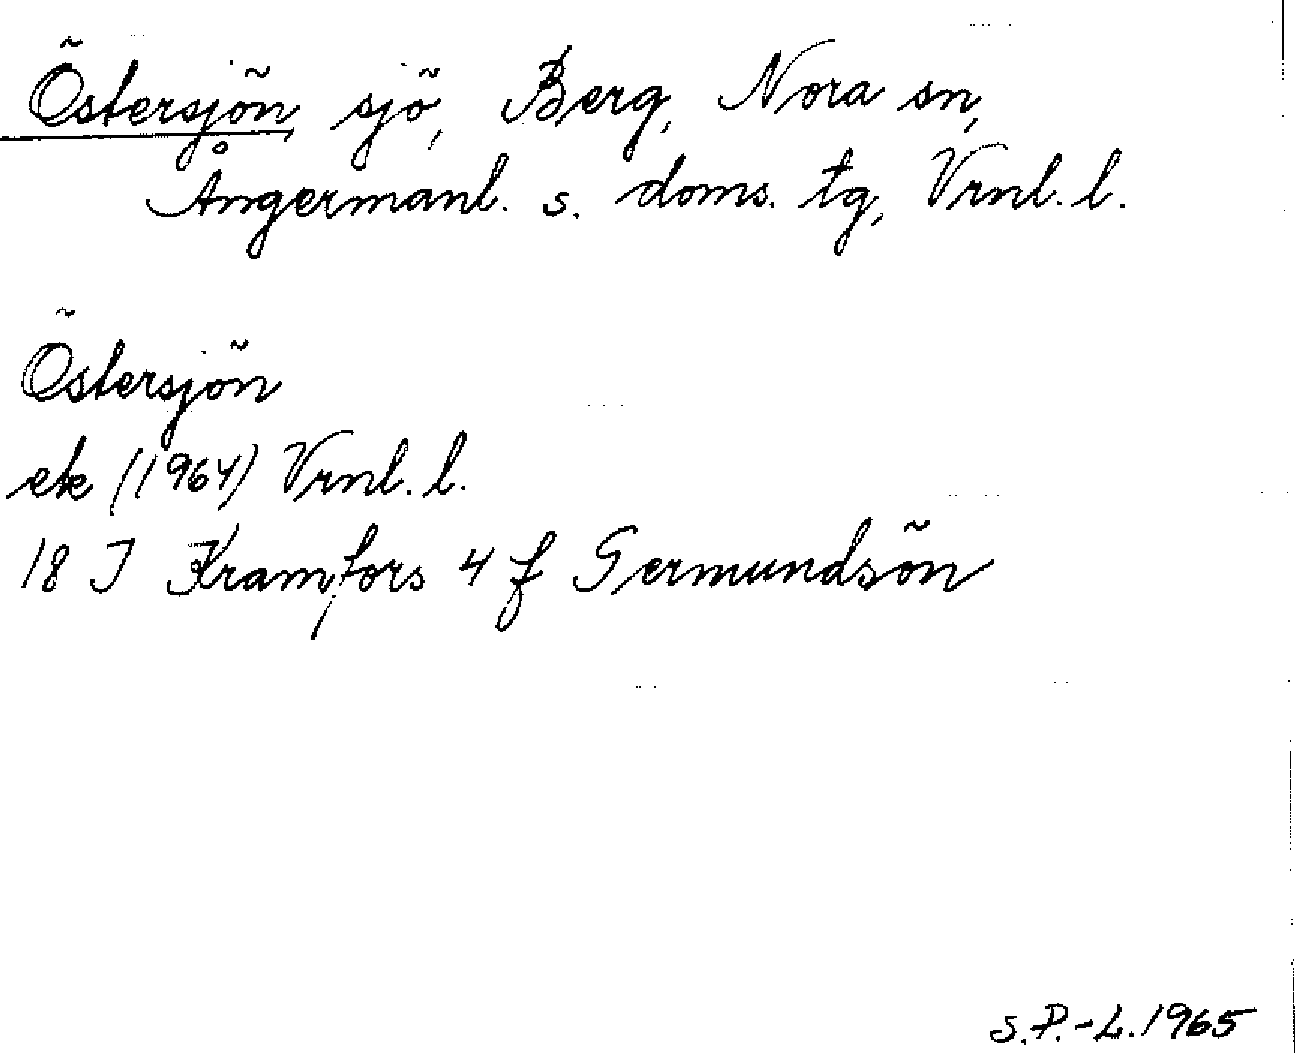 Östersjön, sjö, Berg, Nora sn,
Ångermanl. s. doms. tg, Vrnl. l.
Östersjön
ek (1964) Vrnl. l.
18 I Kramfors 4 f Germundsön
S.P.-L. 1965